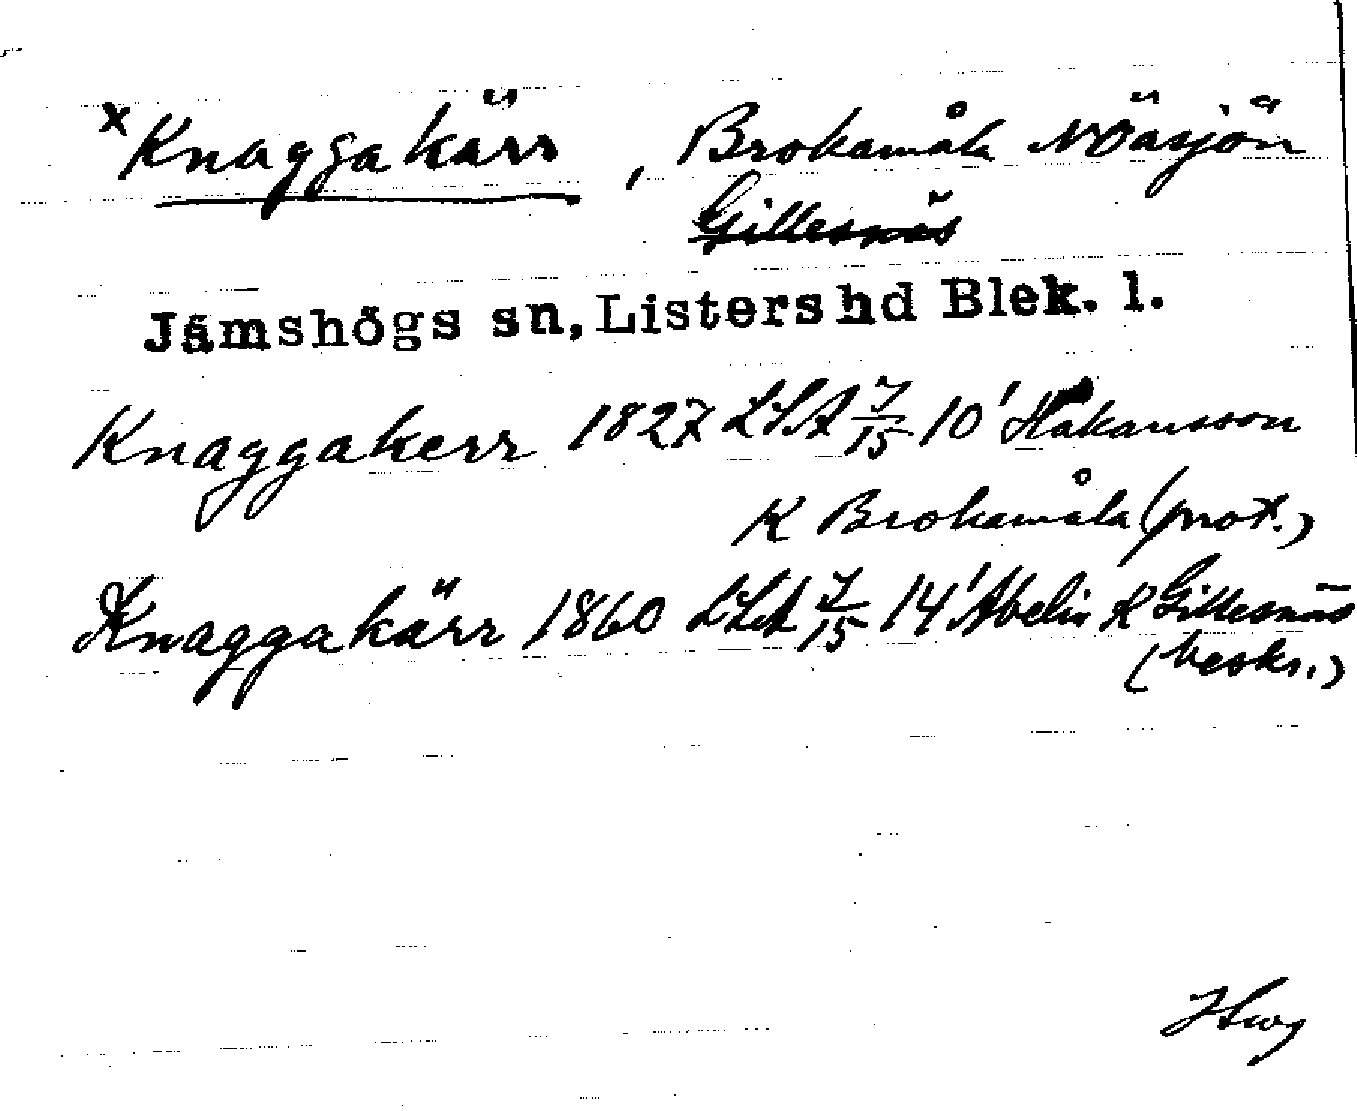 x Knaggakärr, Brokamåla NÖ Åsjön
Gillesnäs
Jämshögs sn, Listers hd Blek. l.
Knaggakerr 1827 LSA 7/15 10' Håkansson
K Brokamåla (prot.)
Knaggakärr 1860 LSA 7/15 14' Abelin K Gillesnäs
(beskr.)